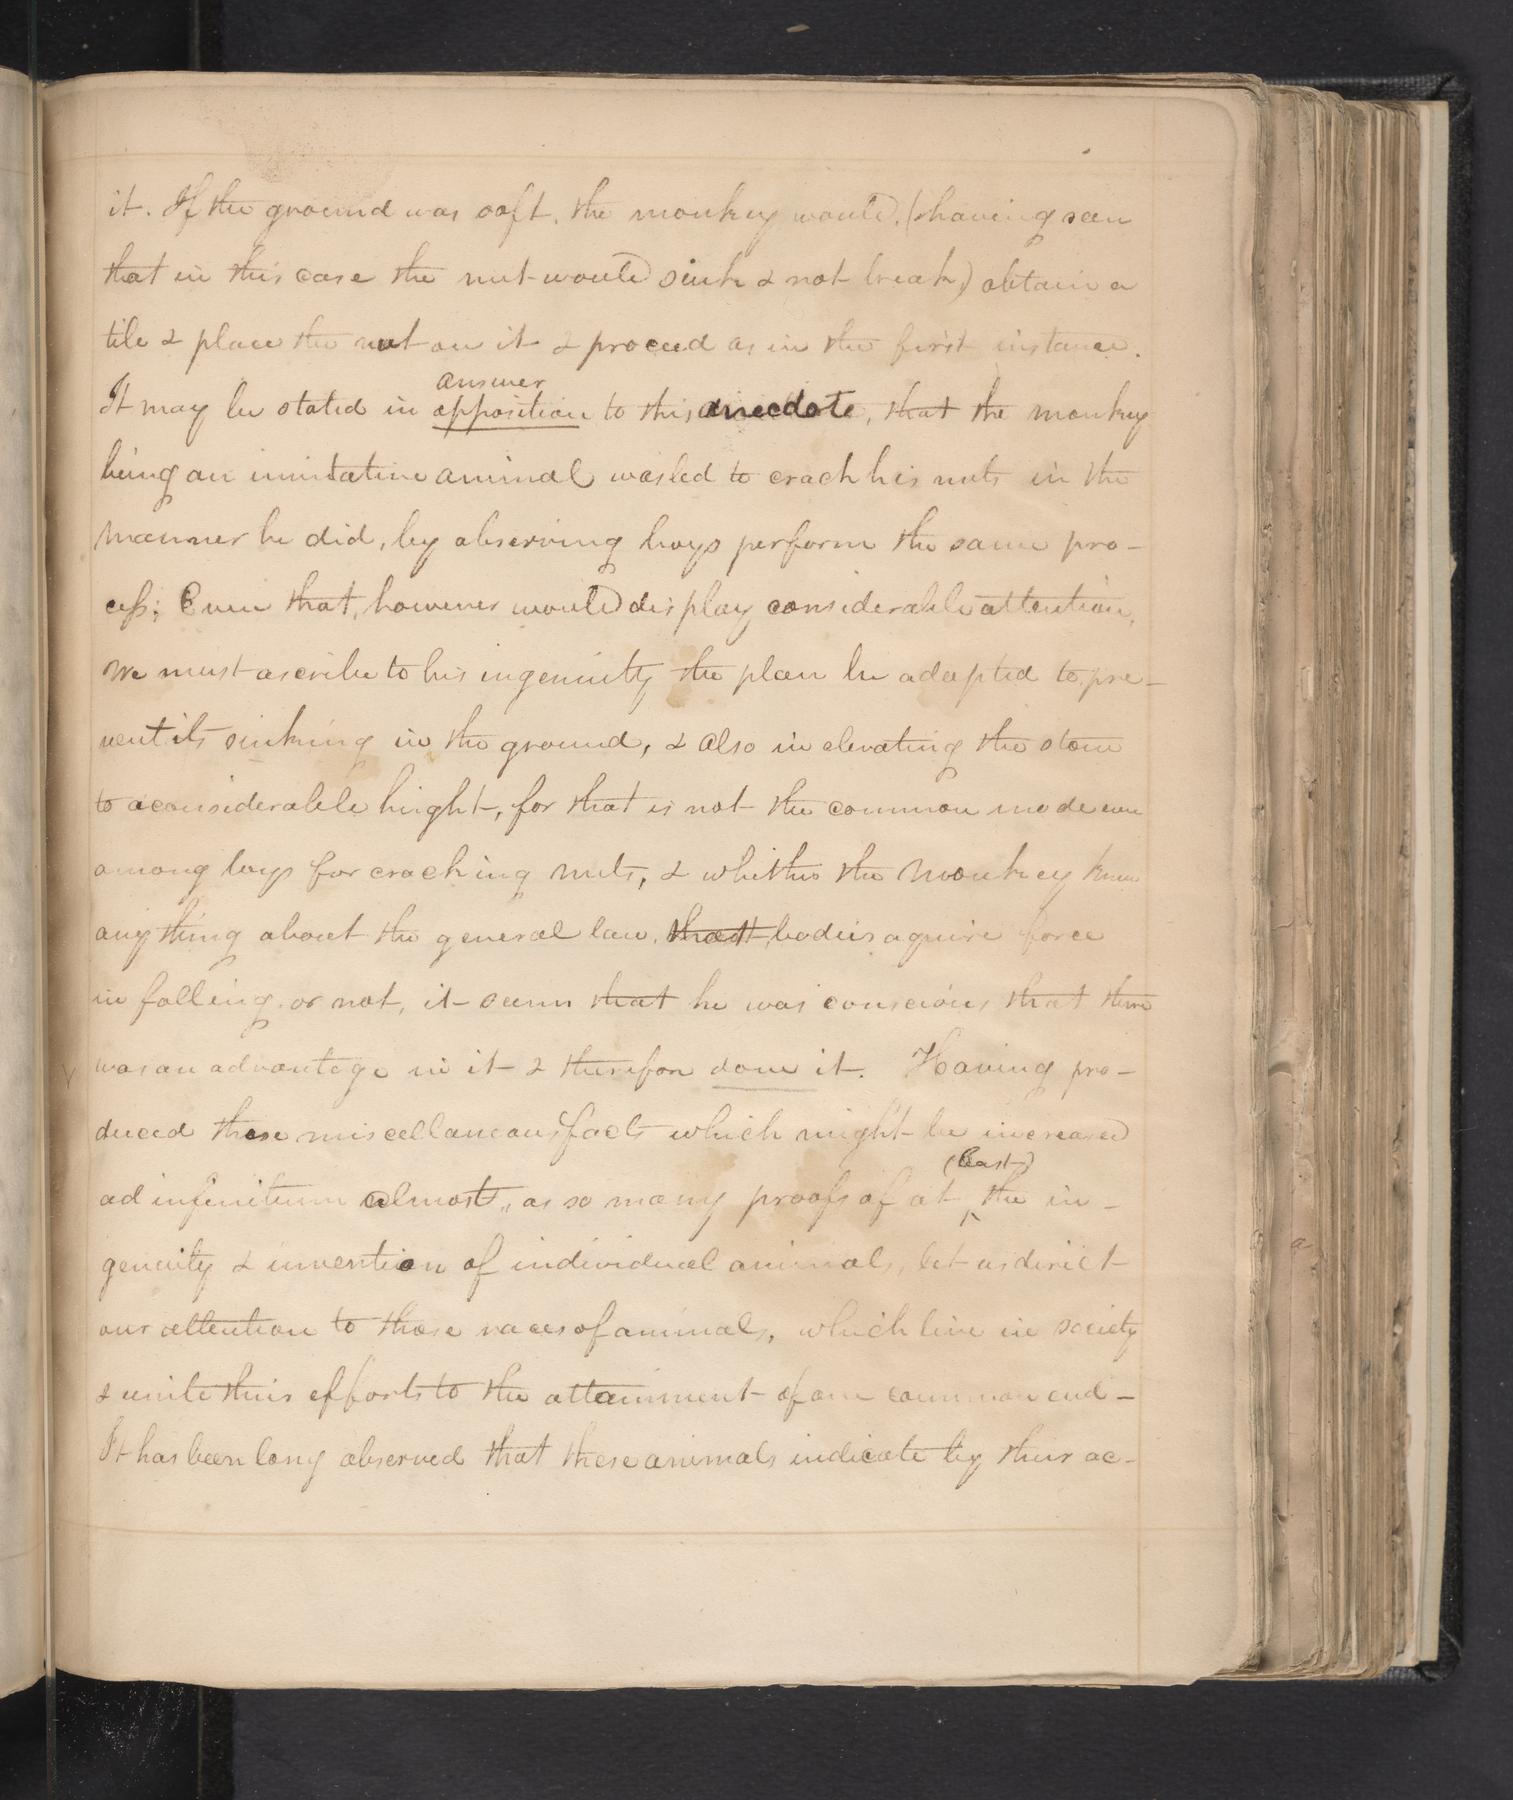 it. If the ground was soft, the monkey would, (having seen
that in this case the nut would sink & not break) obtain a
tile & place the nut on it & proceed as in the first instance.
answer
It may be stated in opposition to this anecdote, that the monkey
being an imitative animal was led to crack his nuts in the
manner he did, by observing boys perform the same pro-
cess; Even that, however would display considerable attention,
We must ascribe to his ingenuity the plan he adapted to pre-
vent its sinking in the ground, & also in elevating the stone
to a considerable hight, for that is not the common mode even
among boys for cracking nuts, & whether the monkey knew
any thing about the general law, that bodies aquire force
in falling or not, it seems that he was conscious that there
was an advantage in it & therefore done it. Having pro-
duced these miscellaneous facts which might be increased
(least)
ad infinitum almost, as so many proofs of at the in-
genuity & invention of individual animals, let us direct
our attention to those races of animals, which live in society
& unite their efforts to the attainment of one common end-
It has been long observed that these animals indicate by their ac-